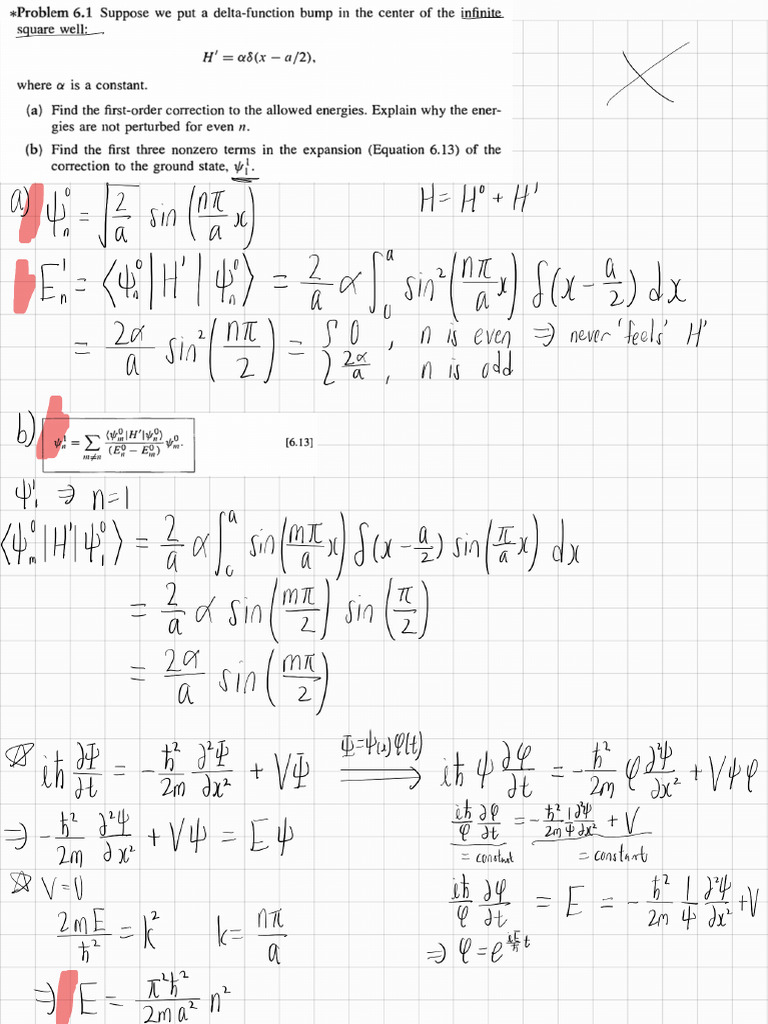 *Problem 6.1 Suppose we put a delta-function bump in the center of the infinite
square well:
H′ = αδ(x − a/2),
where α is a constant.
(a) Find the first-order correction to the allowed energies. Explain why the ener-
gies are not perturbed for even n.
(b) Find the first three nonzero terms in the expansion (Equation 6.13) of the
correction to the ground state, ψ₁¹.
a) ψₙ⁰ = √(2/a) sin(nπ/a x)    H = H⁰ + H′
Eₙ¹ = ⟨ψₙ⁰|H′|ψₙ⁰⟩ = 2/a α ∫₀ᵃ sin²(nπ/a x) δ(x − a/2) dx
= 2α/a sin²(nπ/2) = { 0, n is even ⇒ never 'feels' H′
2α/a, n is odd
b) ψₙ¹ = Σ_{m≠n} ⟨ψₘ⁰|H′|ψₙ⁰⟩/(Eₙ⁰ − Eₘ⁰) ψₘ⁰.    [6.13]
ψ₁¹ ⇒ n=1
⟨ψₘ⁰|H′|ψ₁⁰⟩ = 2/a α ∫₀ᵃ sin(mπ/a x) δ(x − a/2) sin(π/a x) dx
= 2/a α sin(mπ/2) sin(π/2)
= 2α/a sin(mπ/2)
☆ iħ ∂Φ/∂t = −ħ²/2m ∂²Φ/∂x² + VΦ    Φ=ψ(x)φ(t) ⟹ iħ ψ ∂φ/∂t = −ħ²/2m φ ∂²ψ/∂x² + Vψφ
⇒ −ħ²/2m ∂²ψ/∂x² + Vψ = Eψ    iħ/φ ∂φ/∂t = −ħ²/2m 1/ψ ∂²ψ/∂x² + V
= constant    = constant
☆ V=0    iħ/φ ∂φ/∂t = E = −ħ²/2m 1/ψ ∂²ψ/∂x² + V
2mE/ħ² = k²    k = nπ/a    ⇒ φ = e
⇒ E = π²ħ²/2ma² n²